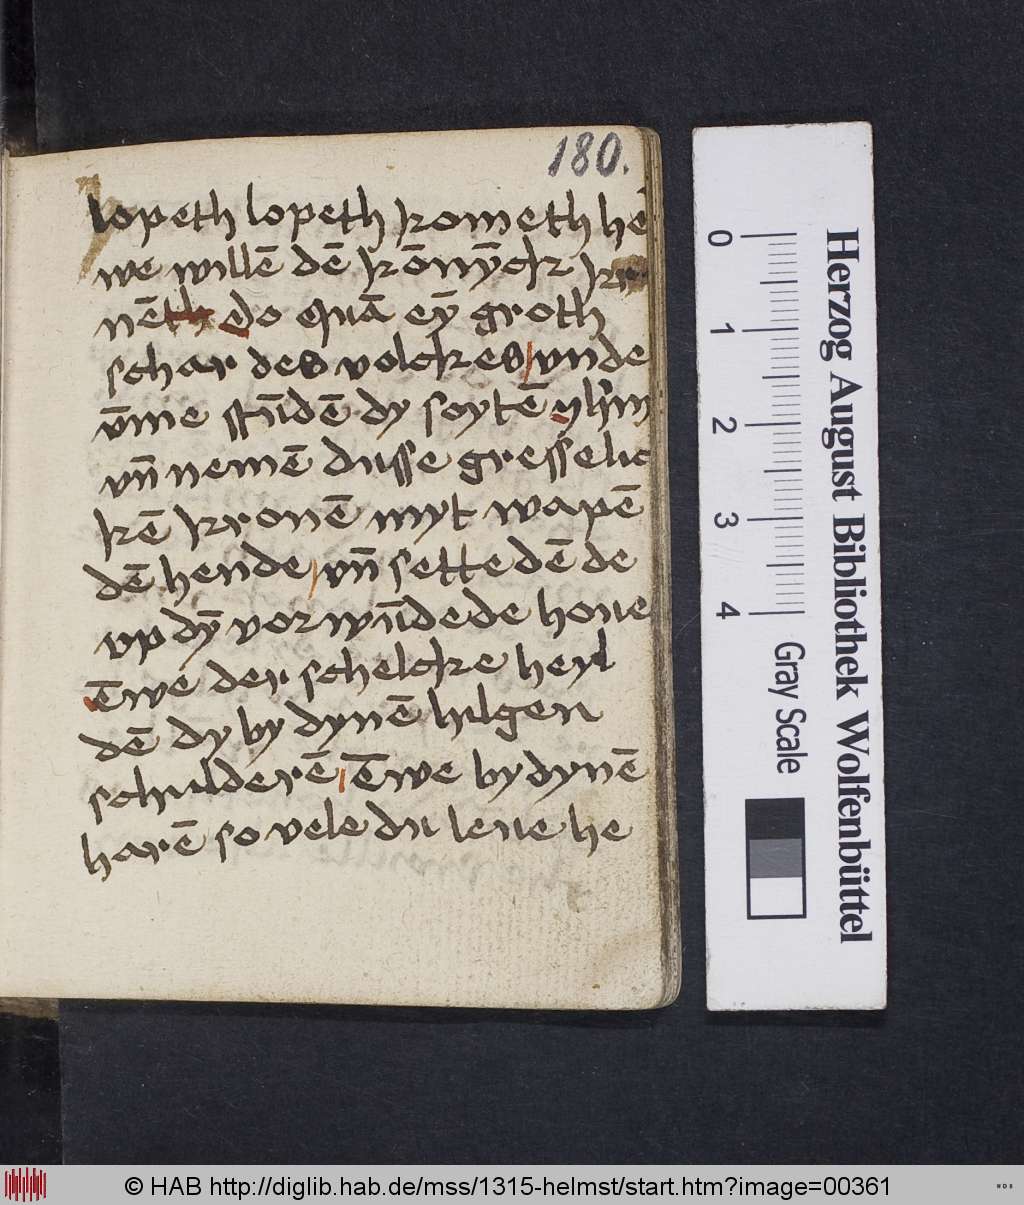 180.
lopeth lopeth kometh he
we willē dē kōnȳck kr
nēth do quā eȳ groth
schar des volckes vnde
v̄me stūdē dy soytē
vn̄ nemē dusse gresselic
kē kronē myt wapē
dē hende vn̄ sette dē de
vp dȳ vorwūdede houe
ēwe der schelcke heyl
dē dy by dynē hilgen
schulderē ēwe by dynē
harē so vele du leue he
Herzog August Bibliothek Wolfenbüttel
0 1 2 3 4
Gray Scale
© HAB http://diglib.hab.de/mss/1315-helmst/start.htm?image=00361